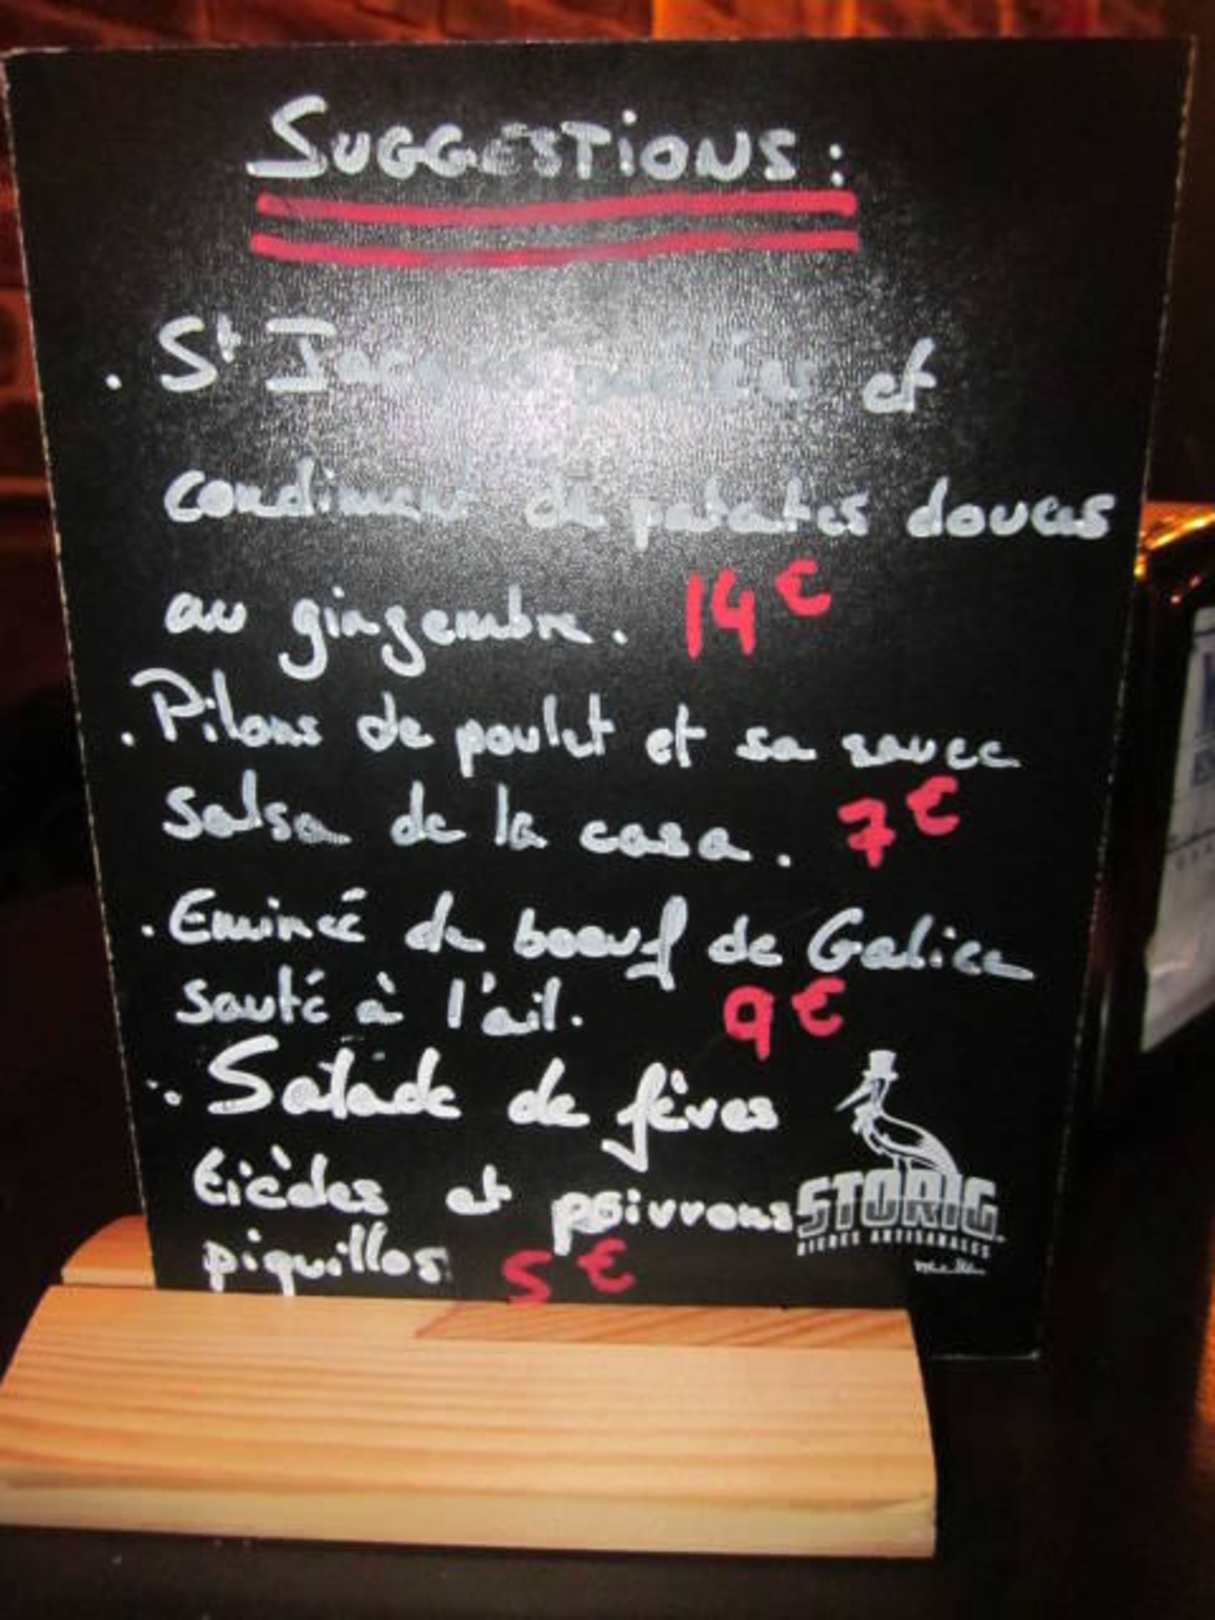 SUGGESTIONS :
. St Jacques poêlées et
condiment de patates douces
au gingembre. 14€
. Pilons de poulet et sa sauce
salsa de la casa. 7€
. Emincé de boeuf de Galice
sauté à l'ail. 9€
. Salade de fèves
tièdes et poivrons
piquillos. 5€
STORIG
BIERES ARTISANALES